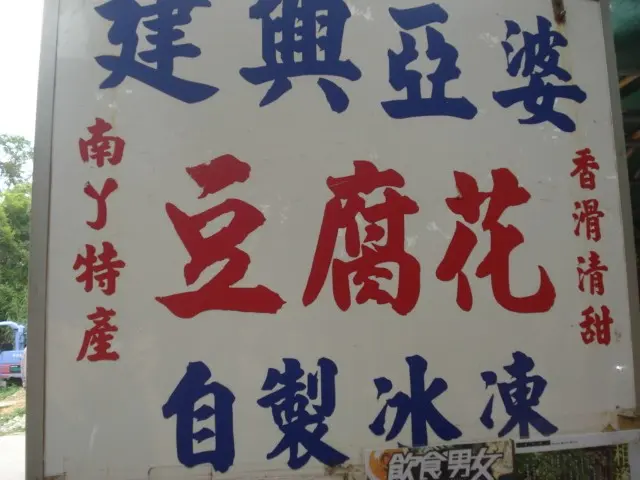 建興亞婆
南丫特產
豆腐花
香滑清甜
自製冰凍
飲食男女